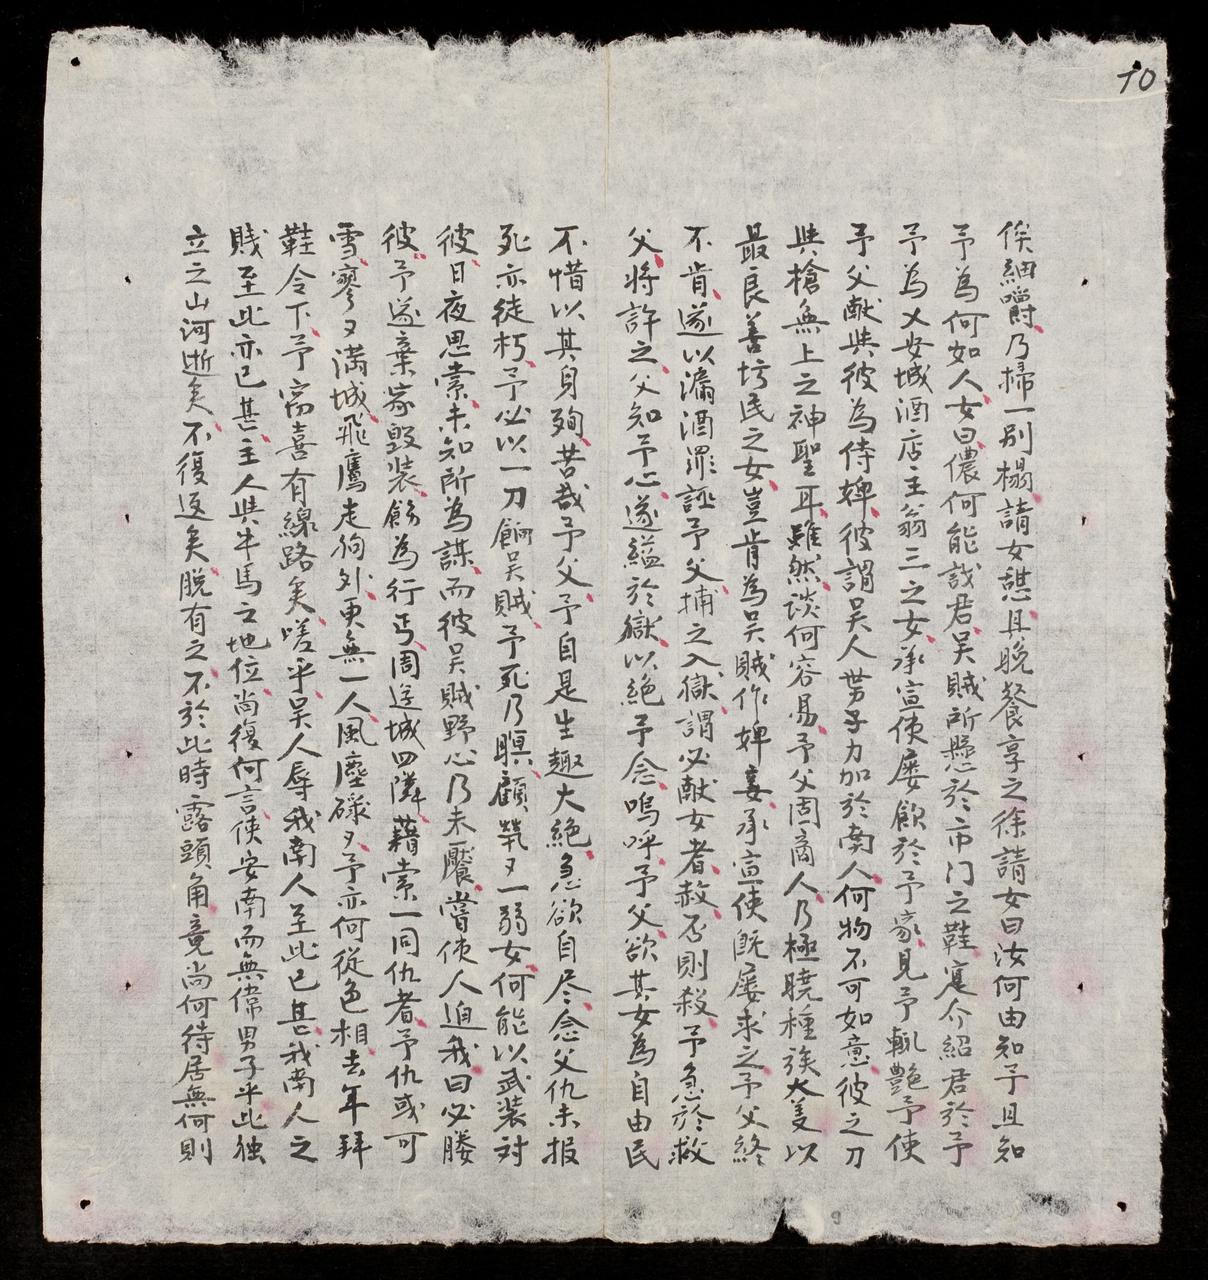 10
俟細嚼乃掃一別榻請女憇且晚餐享之徐請女曰汝何由知予且知
予為何如人女曰儂何能哉君吳賊所懸於市门之鞋寔介紹君於予
予為乂安城酒店主翁三之女承宣使屡飲於予家見予輒艷予使
予父献與彼為侍婢彼謂吳人势力加於南人何物不可如意彼之刀
與槍無上之神聖耳雖然談何容易予父周商人乃極曉種族大義以
最良善坊民之女豈肯為吳賊作婢妾承宣使既屡求之予父終
不肯遂以漏酒罪誣予父捕之入獄謂必献女者赦否則殺予急於救
父将許之父知予心遂縊於獄以絕予念嗚呼予父欲其女為自由民
不惜以其身殉苦哉予父予自是生趣大絕急欲自尽念父仇未报
死亦徒朽予必以一刀餉吳賊予死乃瞑顧煢々一弱女何能以武装对
彼日夜思索未知所為謀而彼吳賊野心乃未饜嘗使人迫我曰必媵
彼予遂棄家毀装餙為行丐周迬城四隣藉索一同仇者予仇或可
雪寥々满城飛鷹走狗外更無一人風塵碌々予亦何從色相去年拜
鞋令下予窃喜有線路矣嗟乎吳人辱我南人至此已甚我南人之
賎至此亦已甚主人與牛馬之地位尚復何言使安南而無偉男子乎此独
立之山河逝矣不復返矣脱有之不於此時露頭角竟尚何待居無何則
9